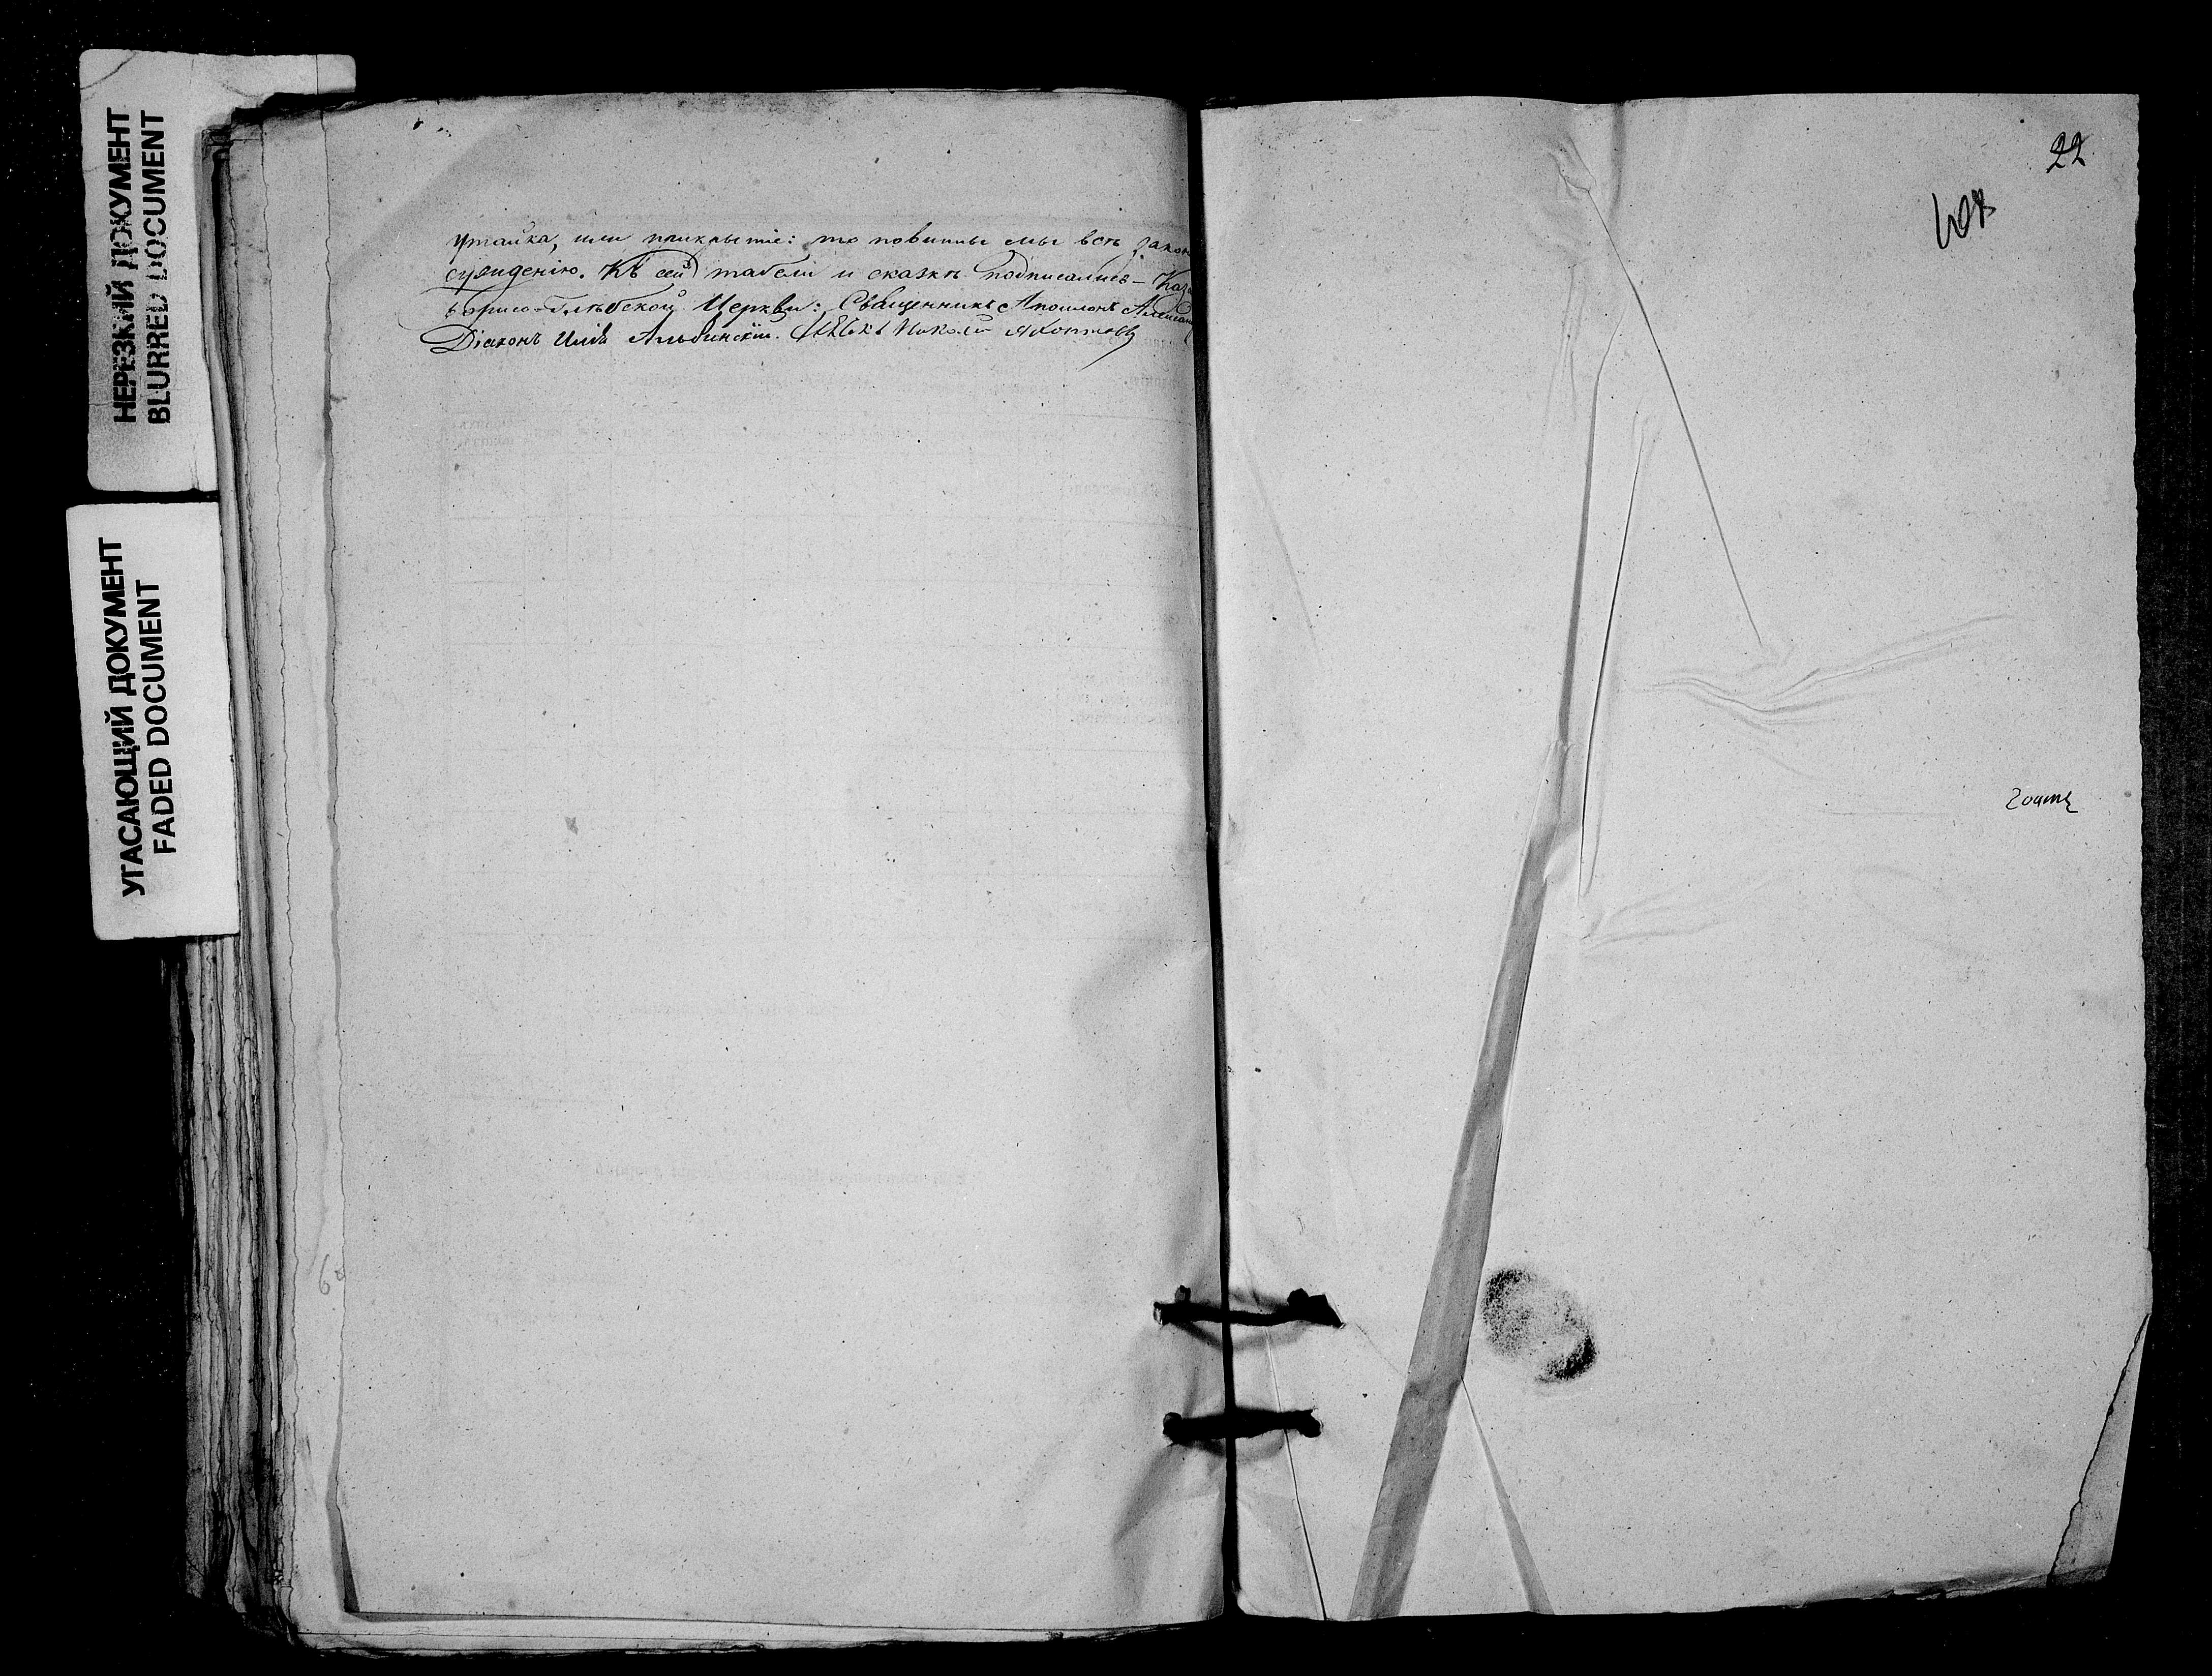 НЕРЕЗКИЙ ДОКУМЕНТ
BLURRED DOCUMENT
УГАСАЮЩИЙ ДОКУМЕНТ
FADED DOCUMENT
утайка, или прикрытіе: то повинны мы всѣ закон
сужденію. Къ сей табели и сказкѣ подписались – Каз
Борисо-Глѣбской Церкви: Священникъ Аполлонъ Алексан
Діаконъ Илія Альбинскій.
22